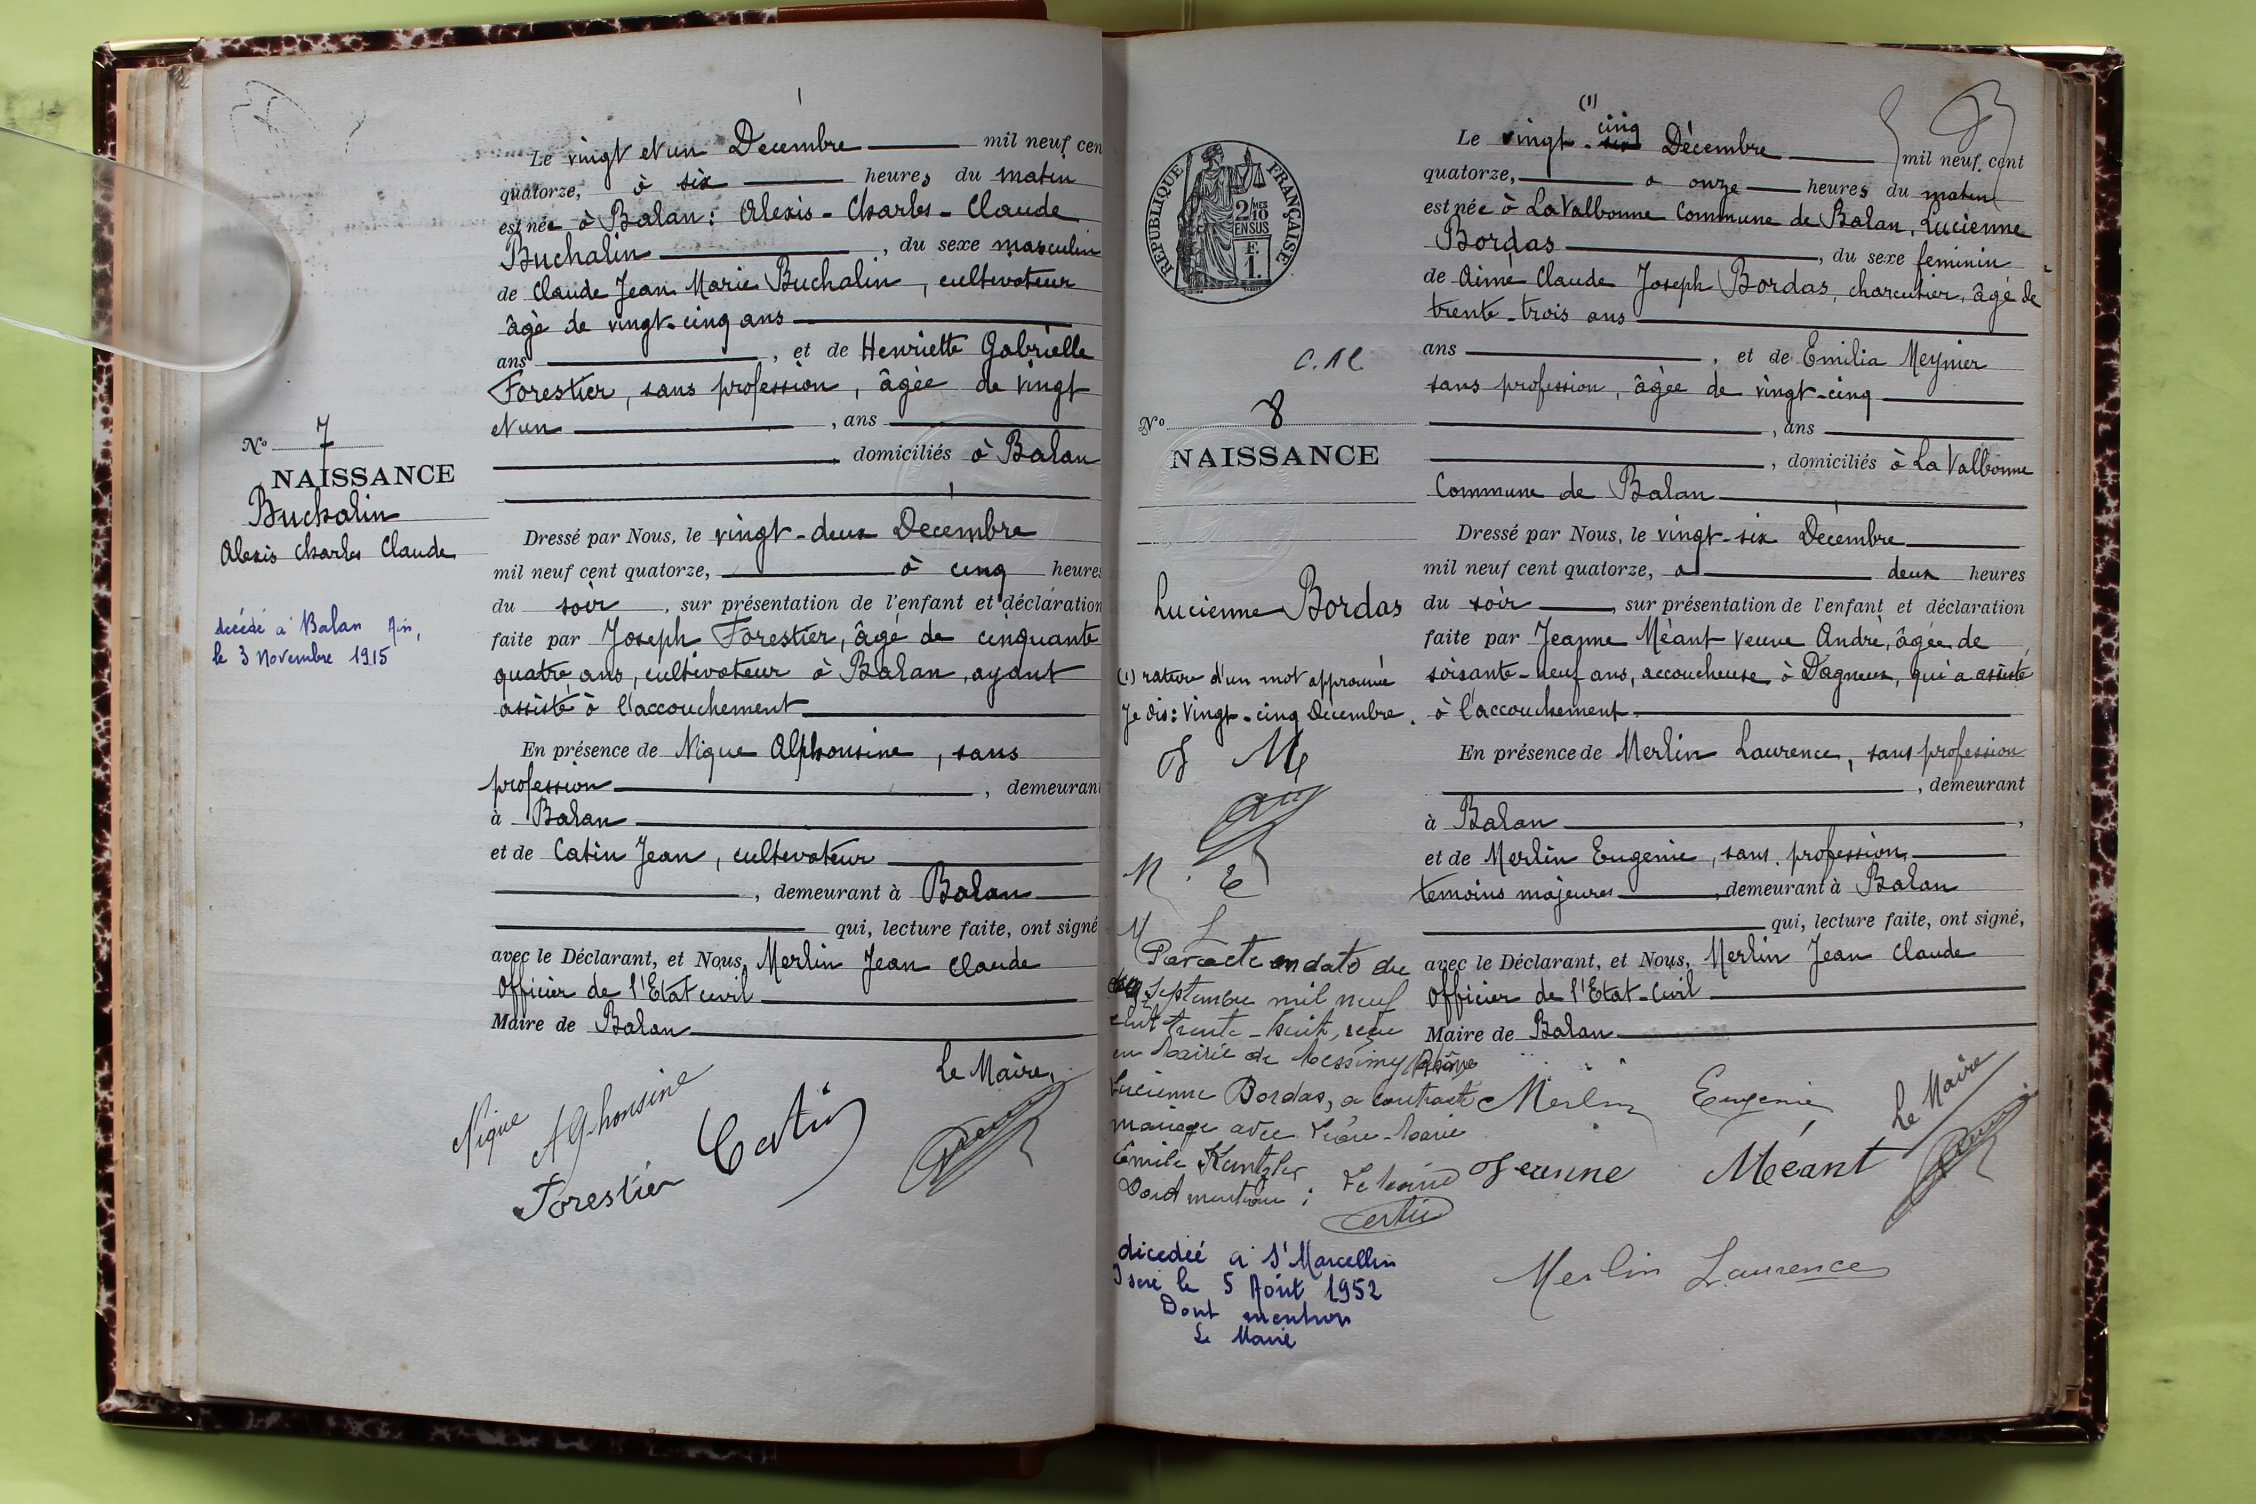 Le vingt et un Décembre mil neuf cen
quatorze, à six heures du matin
est née à Balan : Alexis - Charles - Claude
Buchalin , du sexe masculin
de Claude Jean Marie Buchalin , cultivateur
âgé de vingt-cinq ans
ans , et de Henriette Gabrielle
Forestier, sans profession, âgée de vingt
et un , ans
domiciliés à Balan
No 7
NAISSANCE
Buchalin
Alexis Charles Claude
décédé à Balan Ain,
le 3 Novembre 1915
Dressé par Nous, le vingt-deux Décembre
mil neuf cent quatorze, à cinq heures
du soir , sur présentation de l'enfant et déclaration
faite par Joseph Forestier, âgé de cinquante
quatre ans, cultivateur à Balan, ayant
assisté à l'accouchement
En présence de Nique Alphonsine , sans
profession , demeurant
à Balan
et de Catin Jean, cultivateur
, demeurant à Balan
qui, lecture faite, ont signé
avec le Déclarant, et Nous, Merlin Jean Claude
Officier de l'Etat civil
Maire de Balan
Le Maire,
Nique Alphonsine
Forestier Catin
RÉPUBLIQUE FRANÇAISE
2/10
EN SUS
F.
1.
(1)
cinq
Le vingt-six Décembre mil neuf cent
quatorze, à onze heures du matin
est née à La Valbonne Commune de Balan, Lucienne
Bordas , du sexe féminin
de Aimé Claude Joseph Bordas, charcutier, âgé de
trente-trois ans
ans , et de Emilia Meynier
sans profession, âgée de vingt-cinq
, ans
, domiciliés à La Valbonne
Commune de Balan
No 8
NAISSANCE
Lucienne Bordas
(1) rature d'un mot approuvée
Je dis : Vingt-cinq Décembre.
J M
M. E
M L
Dressé par Nous, le vingt-six Décembre
mil neuf cent quatorze, à deux heures
du soir , sur présentation de l'enfant et déclaration
faite par Jeanne Méant veuve André, âgée de
soixante-neuf ans, accoucheuse à Dagneux, qui a assisté
à l'accouchement
En présence de Merlin Laurence, sans profession
, demeurant
à Balan ,
et de Merlin Eugenie, sans profession,
temoins majeures , demeurant à Balan
qui, lecture faite, ont signé,
avec le Déclarant, et Nous, Merlin Jean Claude
Officier de l'Etat-Civil
Maire de Balan
Par acte en date du
Septembre mil neuf
cent trente-huit, reçu
en Mairie de Messimy Rhône
Lucienne Bordas, a contracté
mariage avec Marie
Emile
Dont mention : Le Maire
Merlin Eugenie
Le Maire
Jeanne Méant
Merlin Laurence
décédée à St Marcellin
Isère le 5 Août 1952
Dont mention
Le Maire